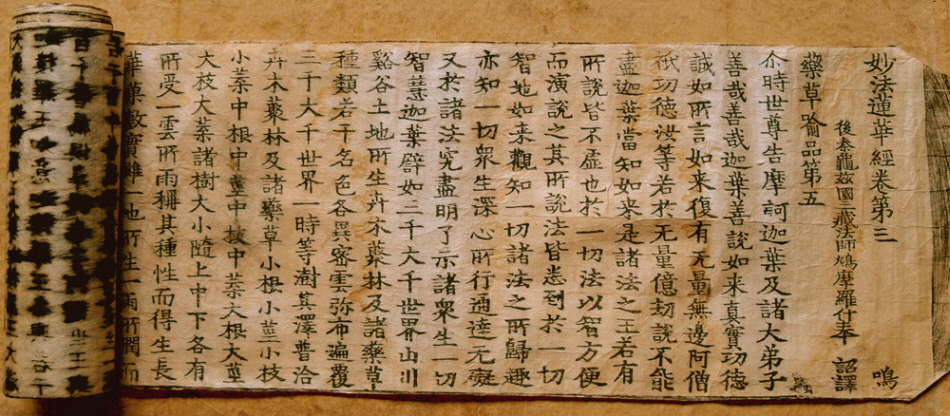 妙法蓮華經卷第三 鳴
後秦龜玆國三藏法師鳩摩羅什奉 詔譯
藥草喻品第五
尒時世尊告摩訶迦葉及諸大弟子
善哉善哉迦葉善說如来真實功德
誠如所言如来復有无量無邊阿僧
祇功德汝等若於无量億劫說不能
盡迦葉當知如来是諸法之王若有
所說皆不虛也於一切法以智方便
而演說之其所說法皆悉到於一切
智地如来觀知一切諸法之所歸趣
亦知一切衆生深心所行通達无礙
又於諸法究盡明了示諸衆生一切
智慧迦葉譬如三千大千世界山川
谿谷土地所生卉木藂林及諸藥草
種類若干名色各異密雲弥布遍覆
三千大千世界一時等澍其澤普洽
卉木藂林及諸藥草小根小莖小枝
小葉中根中莖中枝中葉大根大莖
大枝大葉諸樹大小隨上中下各有
所受一雲所雨稱其種性而得生長
華菓敷實雖地所生一雨所潤而